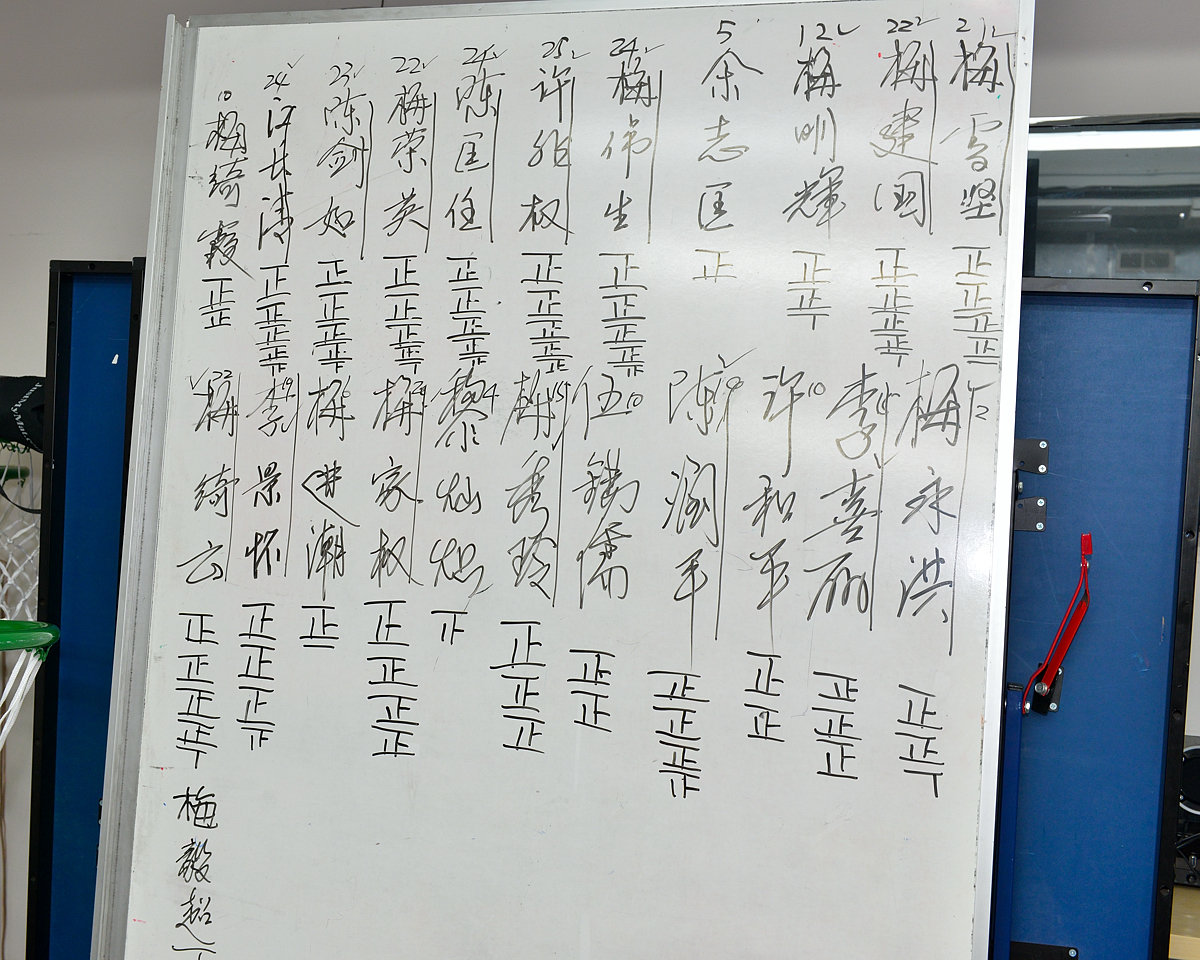 21 梅雪坚 正正正正一
22 梅建国 正正正正
12 梅明輝 正正
5 余志匡 正
24 梅伟生 正正正正正
25 许 权 正正正正正
24 陈匡任 正正正正正
22 梅荣英 正正正正
23 陈剑如 正正正正
24 江长涛 正正正正
10 梅绮霞 正正
12 梅永洪 正正
李喜 正正正
10 许和平 正正
19 陈润平 正正正正
10 伍鴻儒 正正
15 梅秀玲 正正正
4 黎灿灿
20 梅家权 正正正正
6 梅进潮 正一
19 李景怀 正正正
22 梅绮云 正正正正
梅毅超